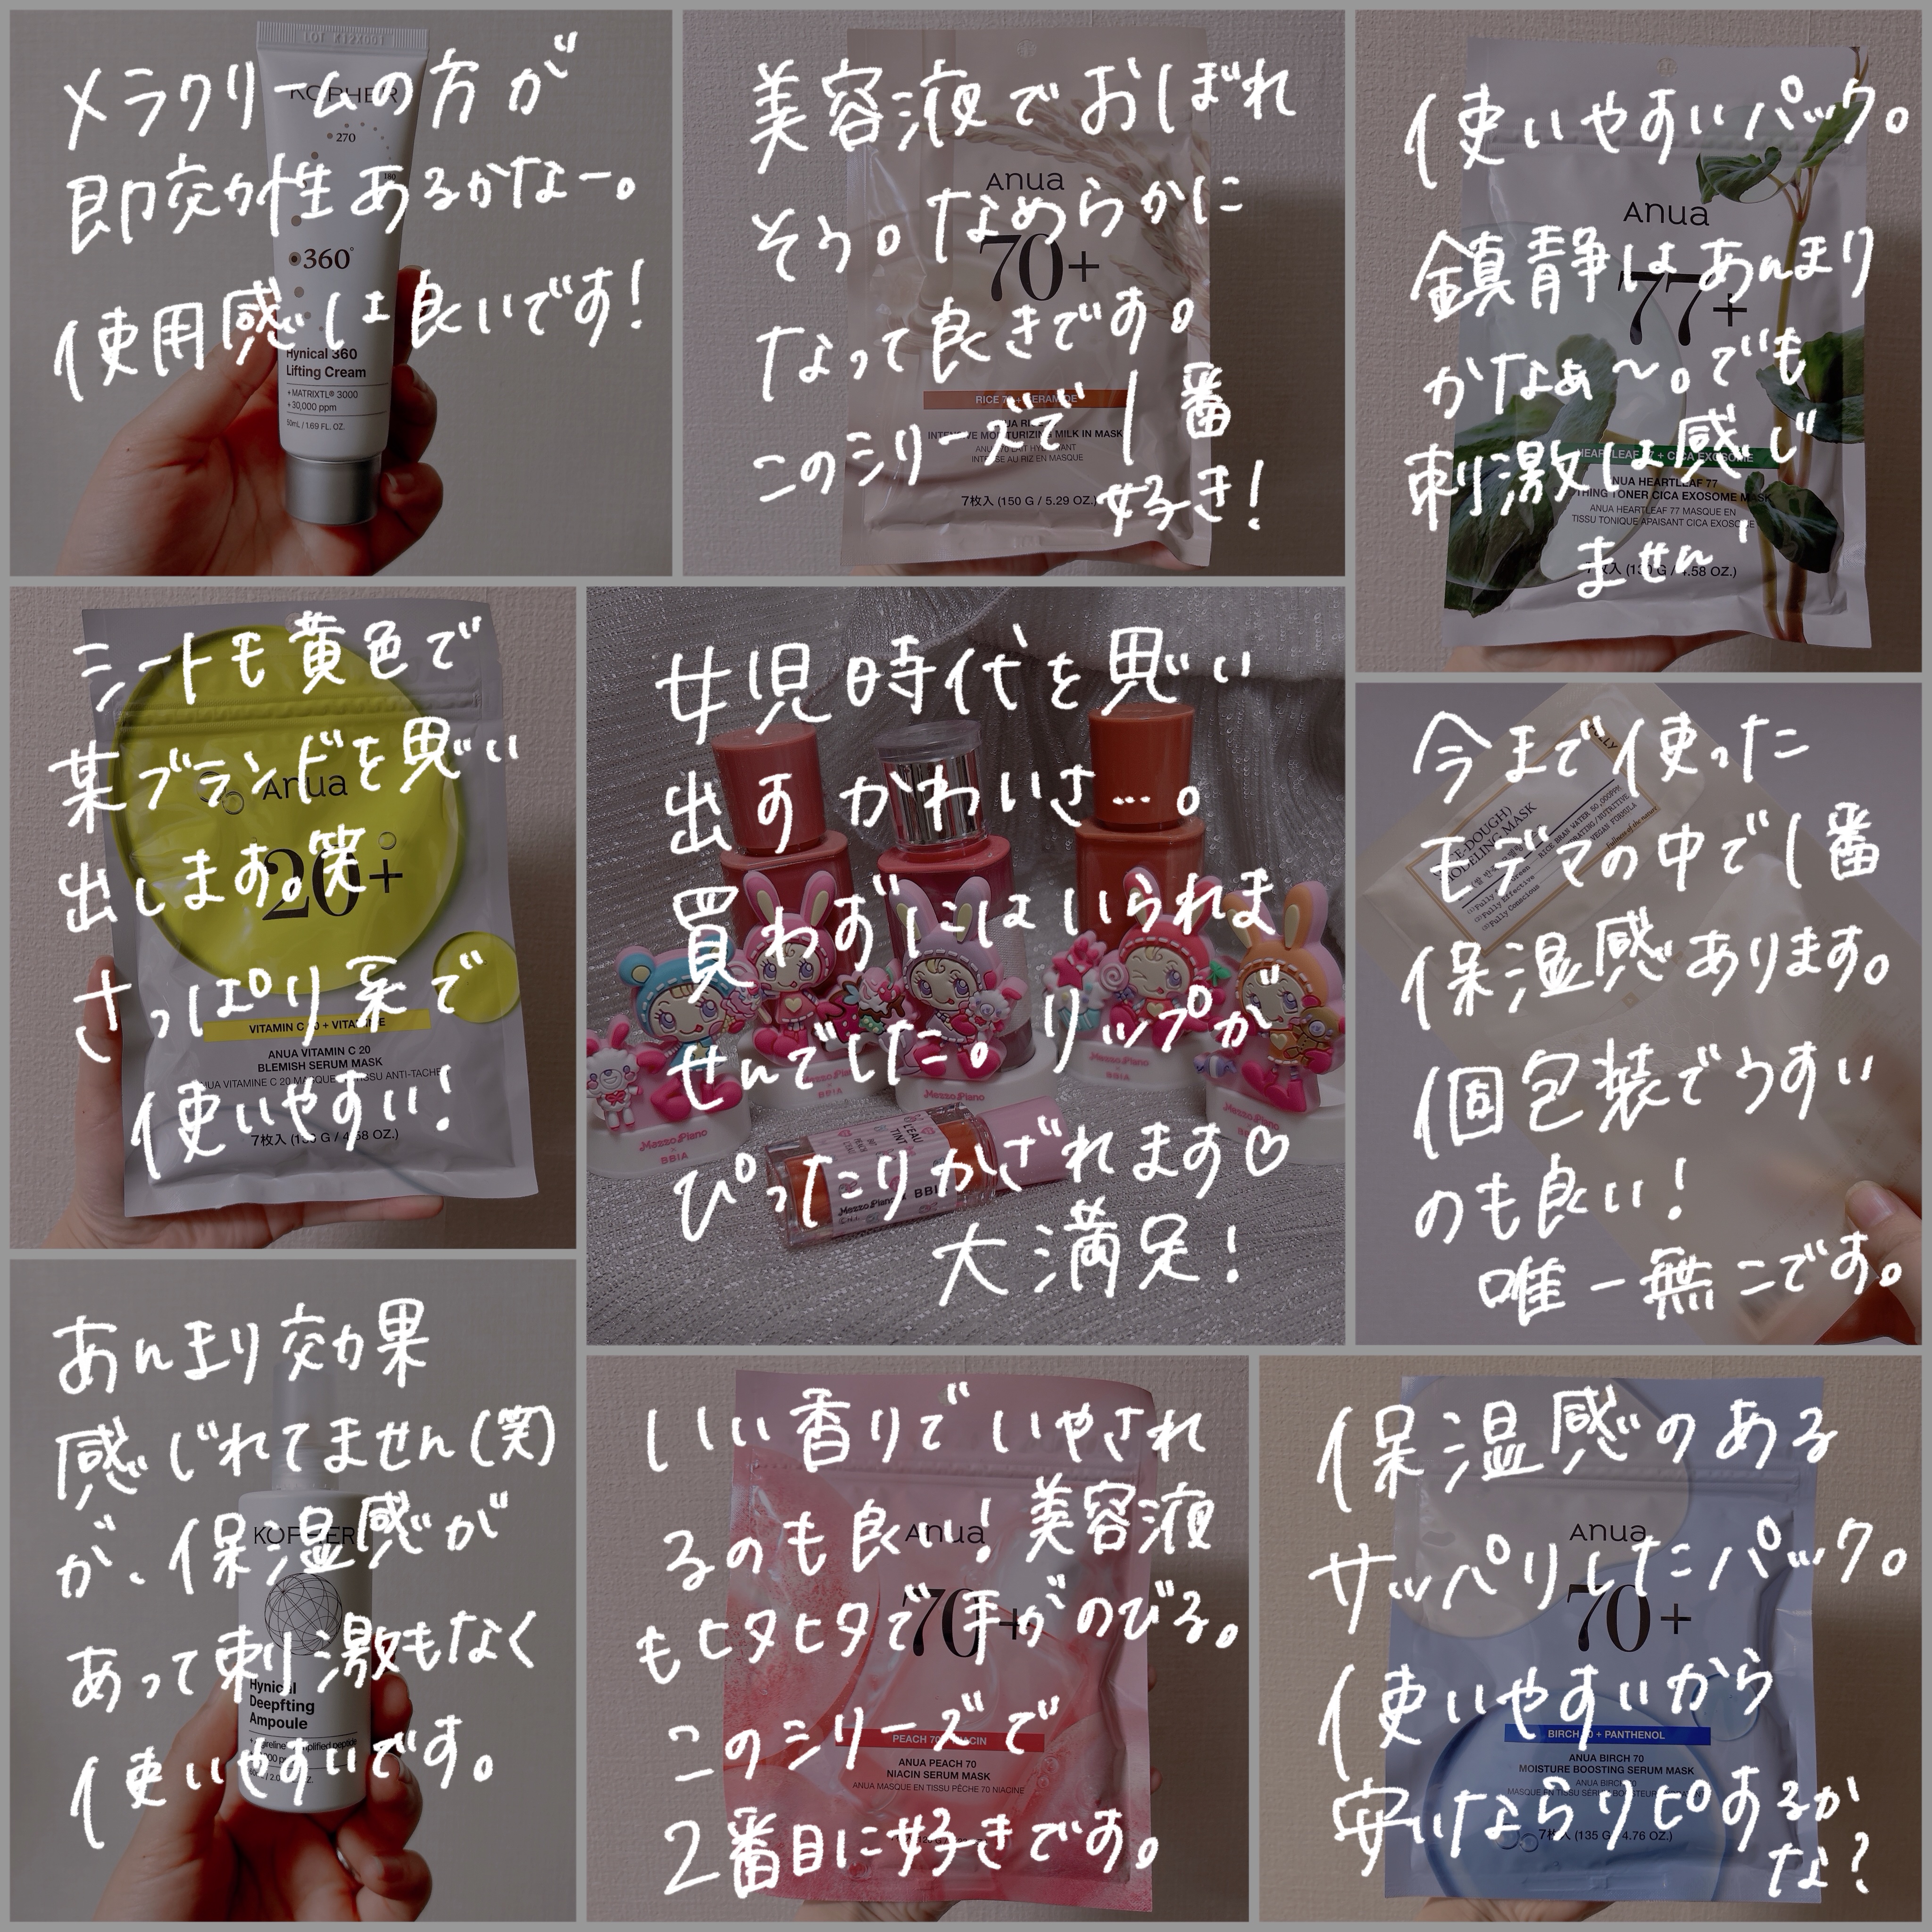 メラクリームの方が
即効性あるかなー。
使用感は良いです!
KOPHER
270
180
360°
Hynical 360
Lifting Cream
+MATRIXTL® 3000
+30,000 ppm
50mL / 1.69 FL. OZ.
美容液でおぼれ
そう。なめらかに
なって良きです。
このシリーズで1番
好き!
Anua
70+
INTENSIVE MOISTURIZING MILK IN MASK
7枚入 (150 G / 5.29 OZ.)
使いやすいパック。
鎮静はあんまり
かなぁ〜。でも
刺激は感じ
ません
Anua
77+
HEARTLEAF 77 + CICA EXOSOME
ANUA HEARTLEAF 77
SOOTHING TONER CICA EXOSOME MASK
ANUA HEARTLEAF 77 MASQUE EN
TISSU TONIQUE APAISANT CICA EXOSOME
シートも黄色で
某ブランドを思い
出します。笑
さっぱり系で
使いやすい!
Anua
20+
VITAMIN C
ANUA VITAMIN C 20
BLEMISH SERUM MASK
女児時代を思い
出すかわいさ…。
買わずにはいられま
せんでした。リップが
ぴったりかざれます♡
大満足!
Mezzo Piano
BBIA
今まで使った
モデマの中で1番
保湿感あります。
個包装でうすい
のも良い!
唯一無二です。
MODELING MASK
あんまり効果
感じれてません(笑)
が、保湿感が
あって刺激もなく
使いやすいです。
KOPHER
Hynical
Deepfting
Ampoule
いい香りでいやされ
るのも良い!美容液
もヒタヒタで手がのびる。
このシリーズで
2番目に好きです。
Anua
70+
ANUA PEACH 70
NIACIN SERUM MASK
ANUA MASQUE EN TISSU PÊCHE 70 NIACINE
保湿感のある
サッパリしたパック。
使いやすいから
安いならリピするか
な?
Anua
70+
BIRCH 70 + PANTHENOL
ANUA BIRCH 70
MOISTURE BOOSTING SERUM MASK
7枚入 (135 G / 4.76 OZ.)